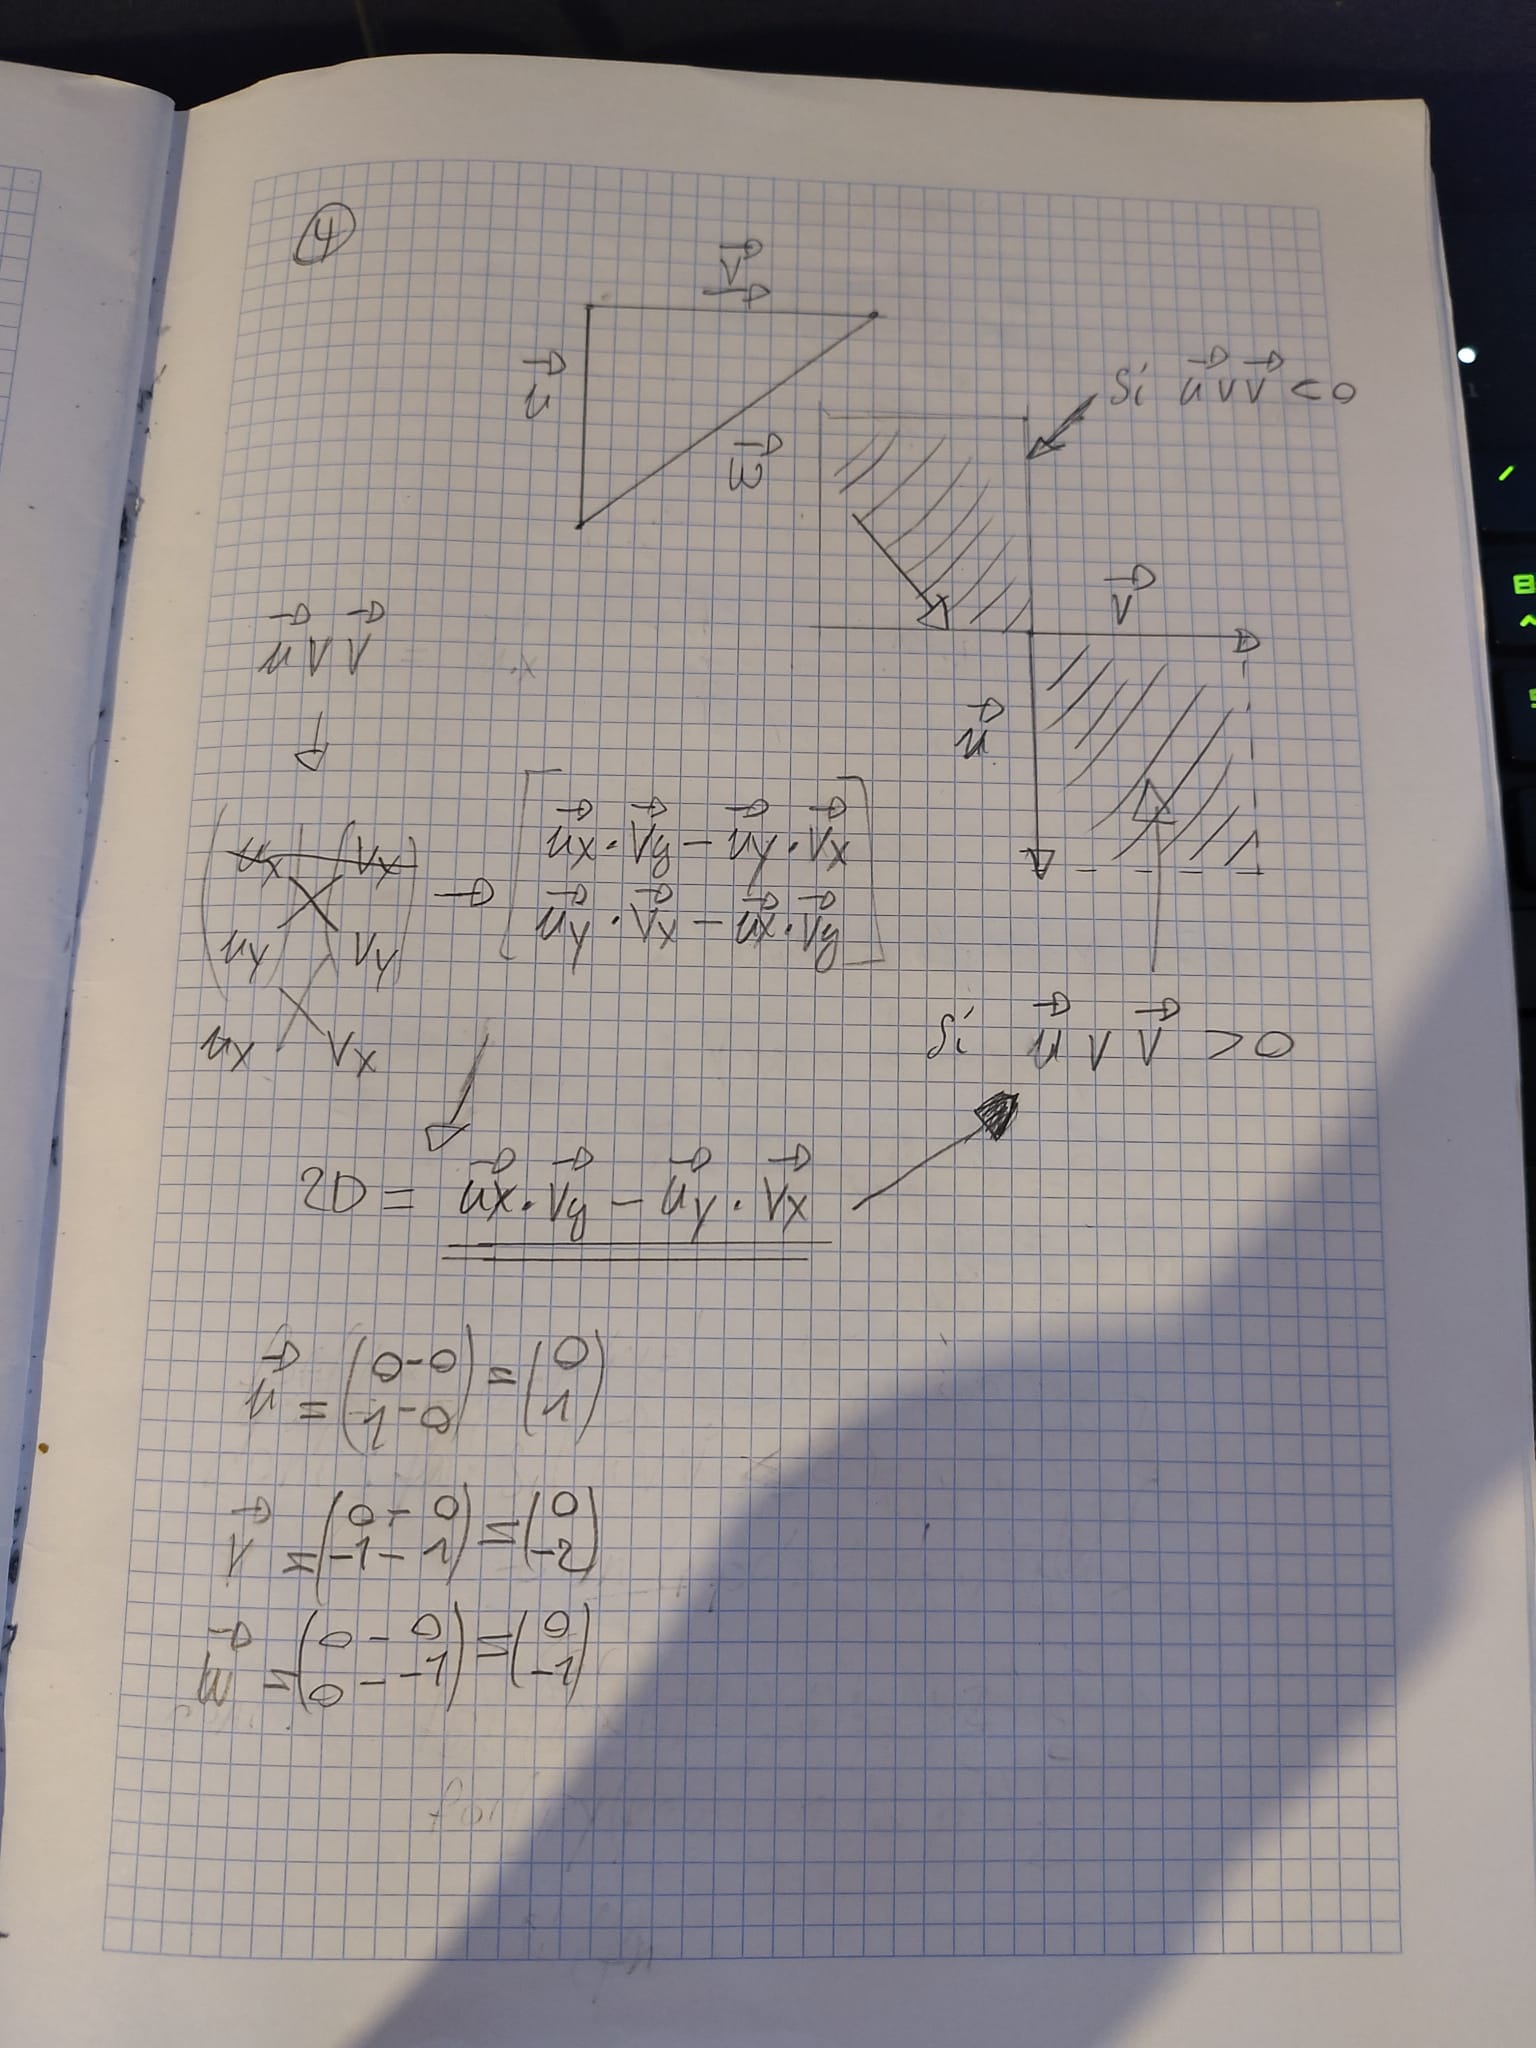 ④
v⃗
u⃗
w⃗
Si u⃗ ∧ v⃗ < 0
v⃗
u⃗
Si u⃗ ∧ v⃗ > 0
u⃗ ∧ v⃗
ux vx
uy vy
ux vx
u⃗x · v⃗y − u⃗y · v⃗x
u⃗y · v⃗x − u⃗x · v⃗y
2D = u⃗x · v⃗y − u⃗y · v⃗x
u⃗ = (0-0 1-0) = (0 1)
v⃗ = (0 - 0 -1 - 1) = (0 -2)
w⃗ = (0 - 0 0 - -1) = (0 -1)